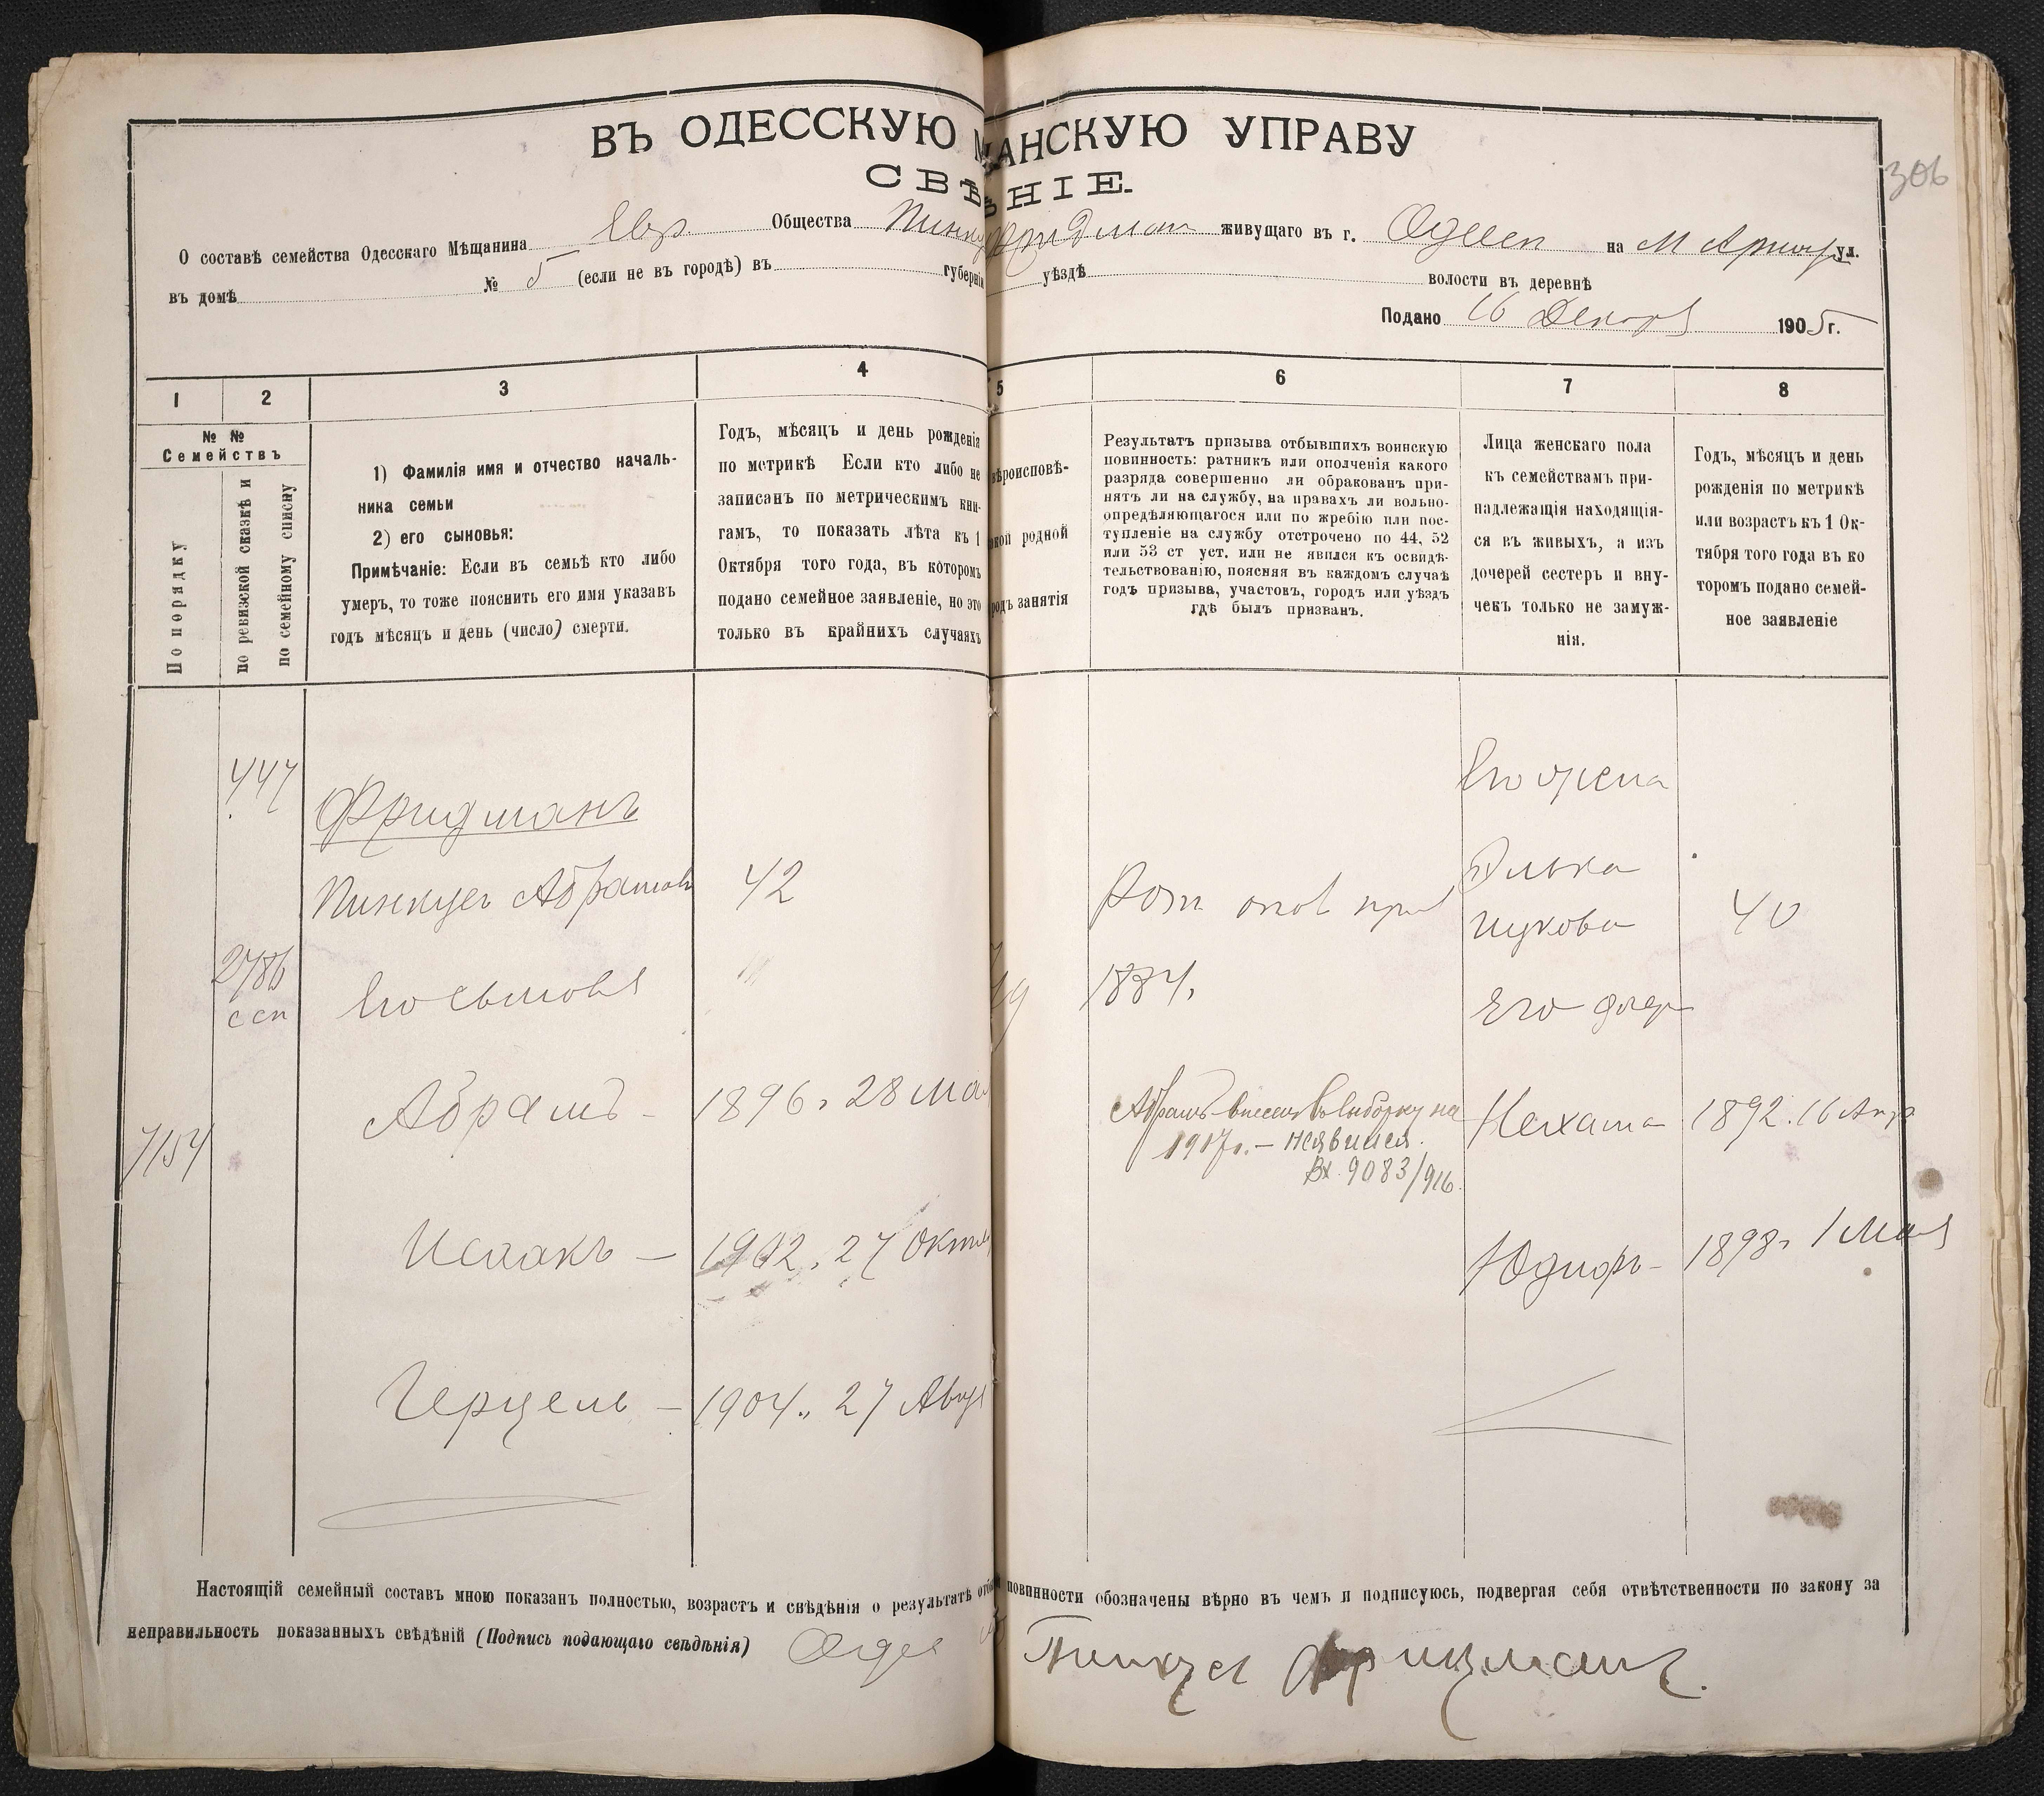 ВЪ ОДЕССКУЮ М АНСКУЮ УПРАВУ
306
СВѢ НІЕ.
О составѣ семейства Одесскаго Мѣщанина Евр. Общества Пинкус Фридман живущаго въ г. Одесси на М Арнаут ул.
въ домѣ № 5 (если не въ городѣ) въ губерніи уѣздѣ волости въ деревнѣ
Подано 16 Декабря 1905 г.
1 2 3 4 5 6 7 8
№ №
Семействъ
По порядку
по ревизской сказкѣ и
по семейному списку
1) Фамилія имя и отчество началь-
ника семьи
2) его сыновья:
Примѣчаніе: Если въ семьѣ кто либо
умеръ, то тоже пояснить его имя указавъ
годъ мѣсяцъ и день (число) смерти.
Годъ, мѣсяцъ и день рожденія
по метрикѣ Если кто либо не
записанъ по метрическимъ кни-
гамъ, то показать лѣта къ 1
Октября того года, въ которомъ
подано семейное заявленіе, но это
только въ крайнихъ случаяхъ
вѣроисповѣ-
акой родной
родъ занятія
Результатъ призыва отбывшихъ воинскую
повинность: ратникъ или ополченія какого
разряда совершенно ли обракованъ при-
нятъ ли на службу, на правахъ ли вольно-
опредѣляющагося или по жребію пли пос-
тупленіе на службу отстрочено по 44, 52
или 53 ст уст. или не явился къ освидѣ-
тельствованію, поясняя въ каждомъ случаѣ
годъ призыва, участовъ, городъ или уѣздъ
гдѣ былъ призванъ.
Лица женскаго пола
къ семействамъ при-
надлежащія находящія-
ся въ живыхъ, а изъ
дочерей сестеръ и вну-
чекъ только не замуж-
нія.
Годъ, мѣсяцъ и день
рожденія по метрикѣ
или возрастъ къ 1 Ок-
тября того года въ ко
торомъ подано семей-
ное заявленіе
447
Фридманъ
Его жена
Пинкусъ Абрамов 42
Рат опол приз
Элька
Цукова 40
2786
ссп
Его сыновья
1884.
Его дочер
Абрамъ - 1896 г 28 Мая
Абрамъ внесенъ въ выборку на
1917 г. - неявился.
Вх. 9083/916.
Нехама 1892. 16 Апр
7154
Исаакъ - 1902. 27 Октяб
Юдифь - 1898 г 1 Мая
Герцель - 1904 г. 27 Авгус
Настоящій семейный составъ мною показан полностью, возрастъ и свѣдѣнія о результатѣ отбы повинности обозначены вѣрно въ чемъ и подписуюсь, подвергая себя отвѣтственности по закону за
неправильность показанныхъ свѣдѣній (Подпись подающаго свѣдѣнія) Одес Пинкус Фридманъ.